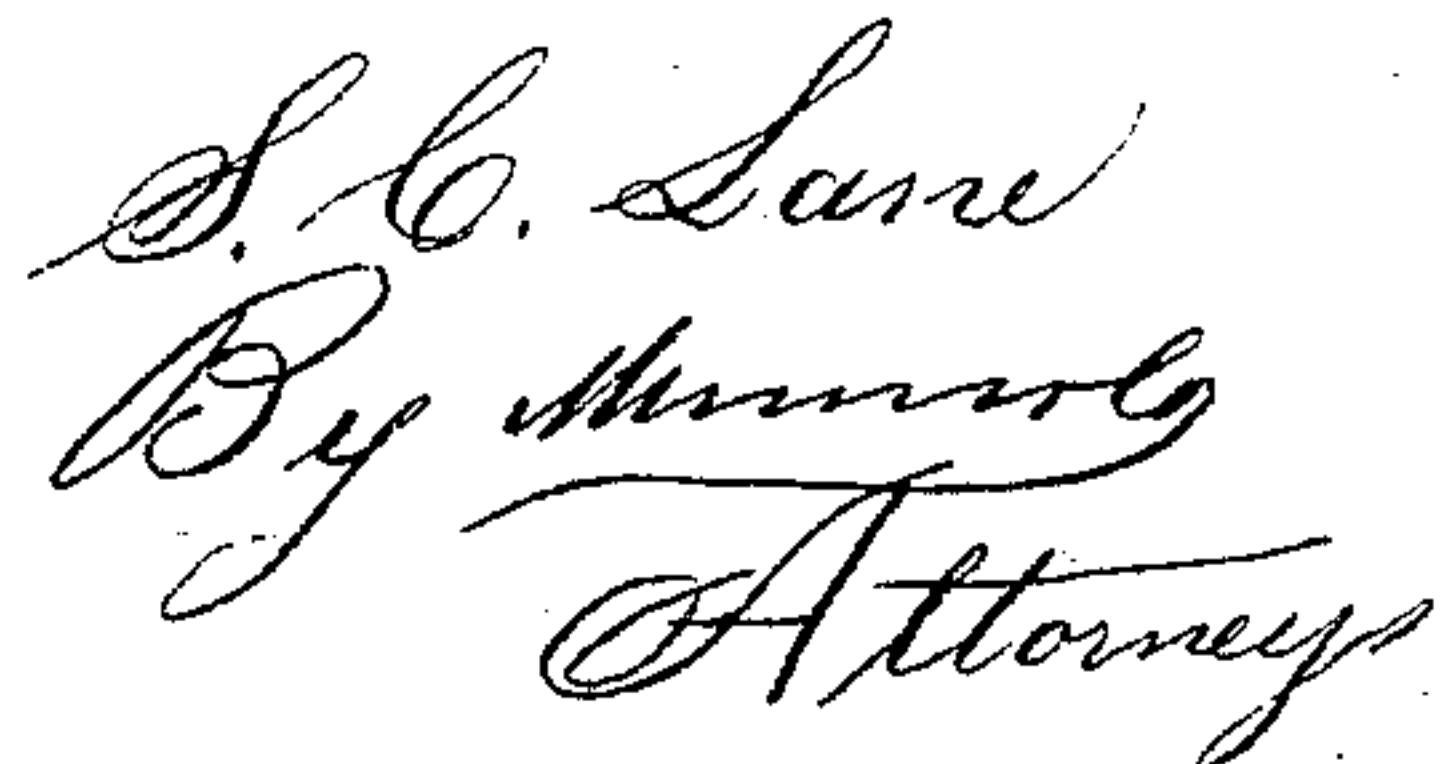 S. C. Lane
By Munn & Co
Attorneys